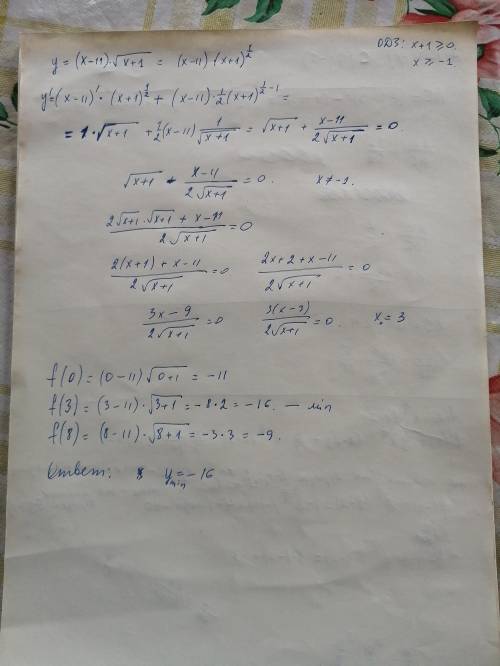 ОДЗ: x+1 ≥ 0.
x ≥ -1
y = (x-11)·√(x+1) = (x-11)·(x+1)^(1/2)
y' = (x-11)'·(x+1)^(1/2) + (x-11)·1/2(x+1)^(1/2-1) =
= 1·√(x+1) + 1/2(x-11) 1/√(x+1) = √(x+1) + (x-11)/(2√(x+1)) = 0
√(x+1) + (x-11)/(2√(x+1)) = 0. x ≠ -1.
(2√(x+1)·√(x+1) + x-11)/(2√(x+1)) = 0
(2(x+1) + x-11)/(2√(x+1)) = 0 (2x+2+x-11)/(2√(x+1)) = 0
(3x-9)/(2√(x+1)) = 0 3(x-3)/(2√(x+1)) = 0. x₀ = 3
f(0) = (0-11)√(0+1) = -11
f(3) = (3-11)·√(3+1) = -8·2 = -16. — min
f(8) = (8-11)·√(8+1) = -3·3 = -9.
Ответ: y min = -16